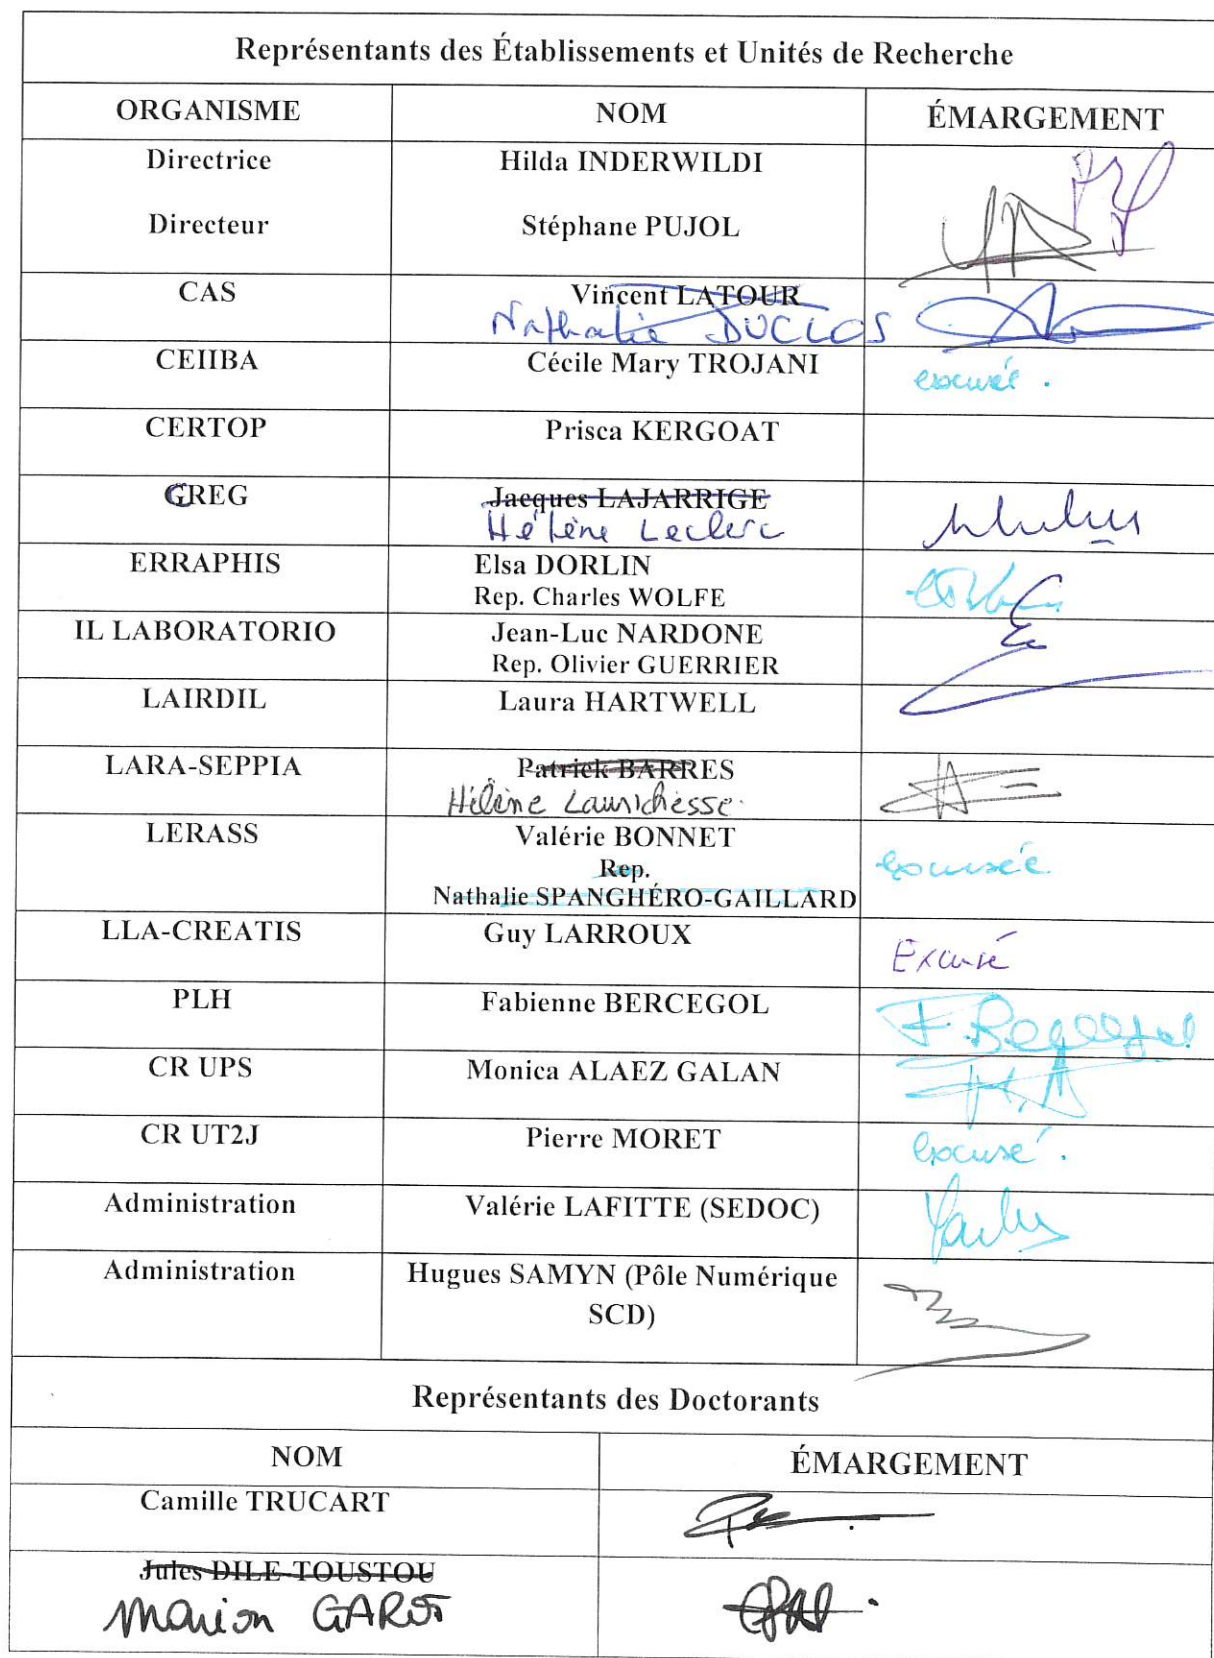 Représentants des Établissements et Unités de Recherche
ORGANISME NOM ÉMARGEMENT
Directrice Hilda INDERWILDI
Directeur Stéphane PUJOL
CAS Vincent LATOUR
Nathalie DUCLOS
CEIIBA Cécile Mary TROJANI excusée.
CERTOP Prisca KERGOAT
CREG Jacques LAJARRIGE
Hélène Leclerc
ERRAPHIS Elsa DORLIN
Rep. Charles WOLFE
IL LABORATORIO Jean-Luc NARDONE
Rep. Olivier GUERRIER
LAIRDIL Laura HARTWELL
LARA-SEPPIA Patrick BARRES
Hélène Laurichesse
LERASS Valérie BONNET excusée
Rep.
Nathalie SPANGHÉRO-GAILLARD
LLA-CREATIS Guy LARROUX Excusé
PLH Fabienne BERCEGOL F. Bercegol
CR UPS Monica ALAEZ GALAN
CR UT2J Pierre MORET excusé.
Administration Valérie LAFITTE (SEDOC)
Administration Hugues SAMYN (Pôle Numérique
SCD)
Représentants des Doctorants
NOM ÉMARGEMENT
Camille TRUCART
Jules DILE-TOUSTOU
Marion